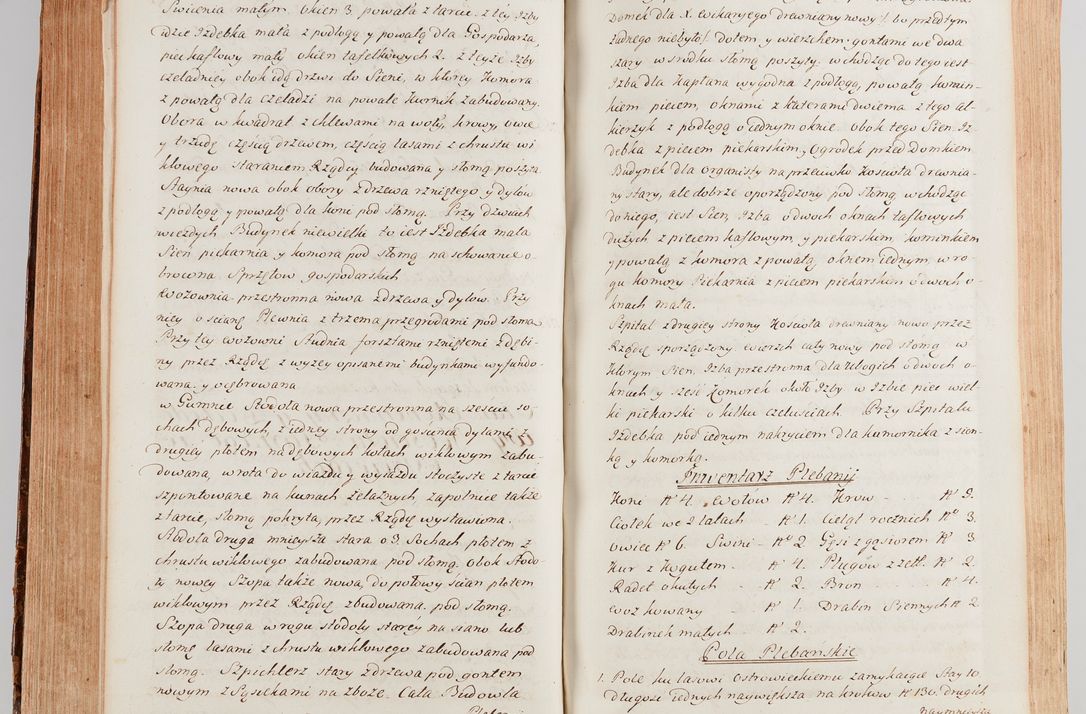 Świcenia małym. Okien 3. powała z tarcic. z tey Izby
idzie Izdebka mała z podłogą y powałą dla Gospodarza,
piec kaflowy mały okien tafelkowych 2. z teyże Izby
czeladniey obok idą drzwi do Sieni, w którey Komora
z powałą dla czeladzi na powale Kurnik zabudowany.
Obora w kwadrat z chlewami na woły, krowy, owce
y trzodę częścią drzewem, częścią lasami z chrustu wi
klowego staraniem Rządcy budowana y słomą poszyta
Staynia nowa obok obory z drzewa rzniętego y dylów
z podłogą y powałą dla koni pod słomą. Przy dzwiach
wiezdych Budynek niewielki to iest Izdebka mała
Sień piekarnia y komora pod słomą na schowanie o-
brocona Sprzętow gospodarskich
Wozownia przestronna nowa z drzewa y dylów. Przy
niey o scianę Plewnia z trzema przegrodami pod słomą
Przy tey wozowni Studnia forsztami rzniętemi z dębi-
ny przez Rządcę z wyzey opisanemi budynkami wyfundo
wana y ocębrowana
w Gumnie Stodoła nowa przestronna na szesciu so,
chach dębowych, z iedney strony od gościnca dylami z
drugiey płotem na dębowych kołach wiklowym zabu-
dowana, wrota do wiazdu y wyiazdu stoczyste z tarcic
szpontowane na kunach żelaznych zapolnice także
z tarcic, słomą pokryta, przez Rządcę wystawiona.
Stodoła druga mnieysza stara o 3. Sochach płotem z
chrustu wiklowego zabudowana pod słomą. obok Stodo-
ły nowey Szopa także nowa, do połowy scian płotem
wiklowym przez Rządcę zbudowana pod słomą.
Szopa druga w rogu stodoły starey na siano lub
słomę lasami z chrustu wiklowego zabudowana pod
słomą. Szpichlerz stary z drzewa pod gontem
nowym z Sysulkami na zboże. Cała Budowla
Domek dla X. wikaryego drewniany nowy /: bo przedtym
żadnego niebyło :/ dołem y wierzchem gontami we dwa
szary w srodku słomą poszyty. wchodząc do tego iest
Izba dla Kapłana wygodna z podłogą, powałą komin-
kiem piecem, oknami z kwaterami dwiema z tego al-
kierzyk z podłogą o iednym oknie. obok tego Sień Iz-
debka z piecem piekarskim, Ogródek przed Domkiem
Budynek dla organisty na przeciwko kościoła drewnia-
ny stary, ale dobrze oporządzony pod słomą wchodząc
do niego, iest Sień, Izba o dwoch oknach taflowych
dużych z piecem kaflowym, y piekarskim, kominkiem
y powałą z komora z powałą, oknem iednym, w ro-
gu komory Piekarnia z piecem piekarskim o dwoch o-
knach mała.
Szpital z drugiey strony Kościoła drewniany nowo przez
Rządcę sporządzony. wierzch cały nowy pod słomą w
którym Sień, Izba przestronna dla Ubogich o dwoch o-
knach y sześć Komorek około Izby w Izbie piec wiel-
ki piekarski o kilku czeluściach. Przy Szpitalu
Izdebka pod iednym nakryciem dla komornika z sion-
ką y komorką.
Inwentarz Plebanij
Koni N° 4. Wołow N° 4. Krow - - N° 9.
Ciołek we 2 latach - N° 1. Cieląt rocznich N° 3.
Owiec N° 6. Swini - N° 2. Gęsi z gąsiorem N° 3
Kur z kogutem - N° 4. Pługow z żel. N° 2.
Radeł okutych - N° 2. Bron - - N° 4.
Woz kowany - N° 1. Drabin Siennych N° 2.
Drabinek małych - N° 2.
Pola Plebańskie
1. Pole ku lasowi Ostrowieckiemu zamykaiące Stayto
długosc iednych naywiększa na krokow N° 130. drugich
naymnieysza